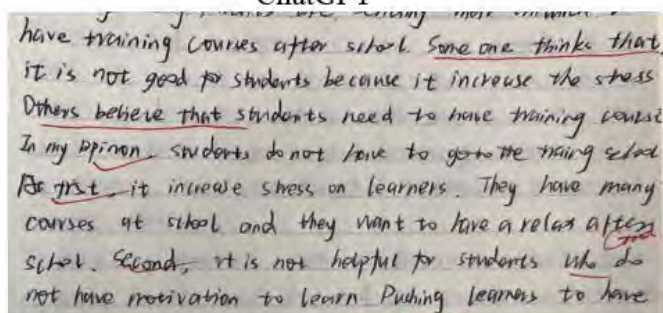 ChatGPT
have training courses after school. Some one thinks that,
it is not good for students because it increase the stress
Others believe that students need to have training course
In my opinon, students do not have to go to the traing school
At frst, it increase stress on learners. They have many
courses at school and they want to have a relax after
school. Second, it is not helpful for students who do
not have motivation to learn Pushing learners to have